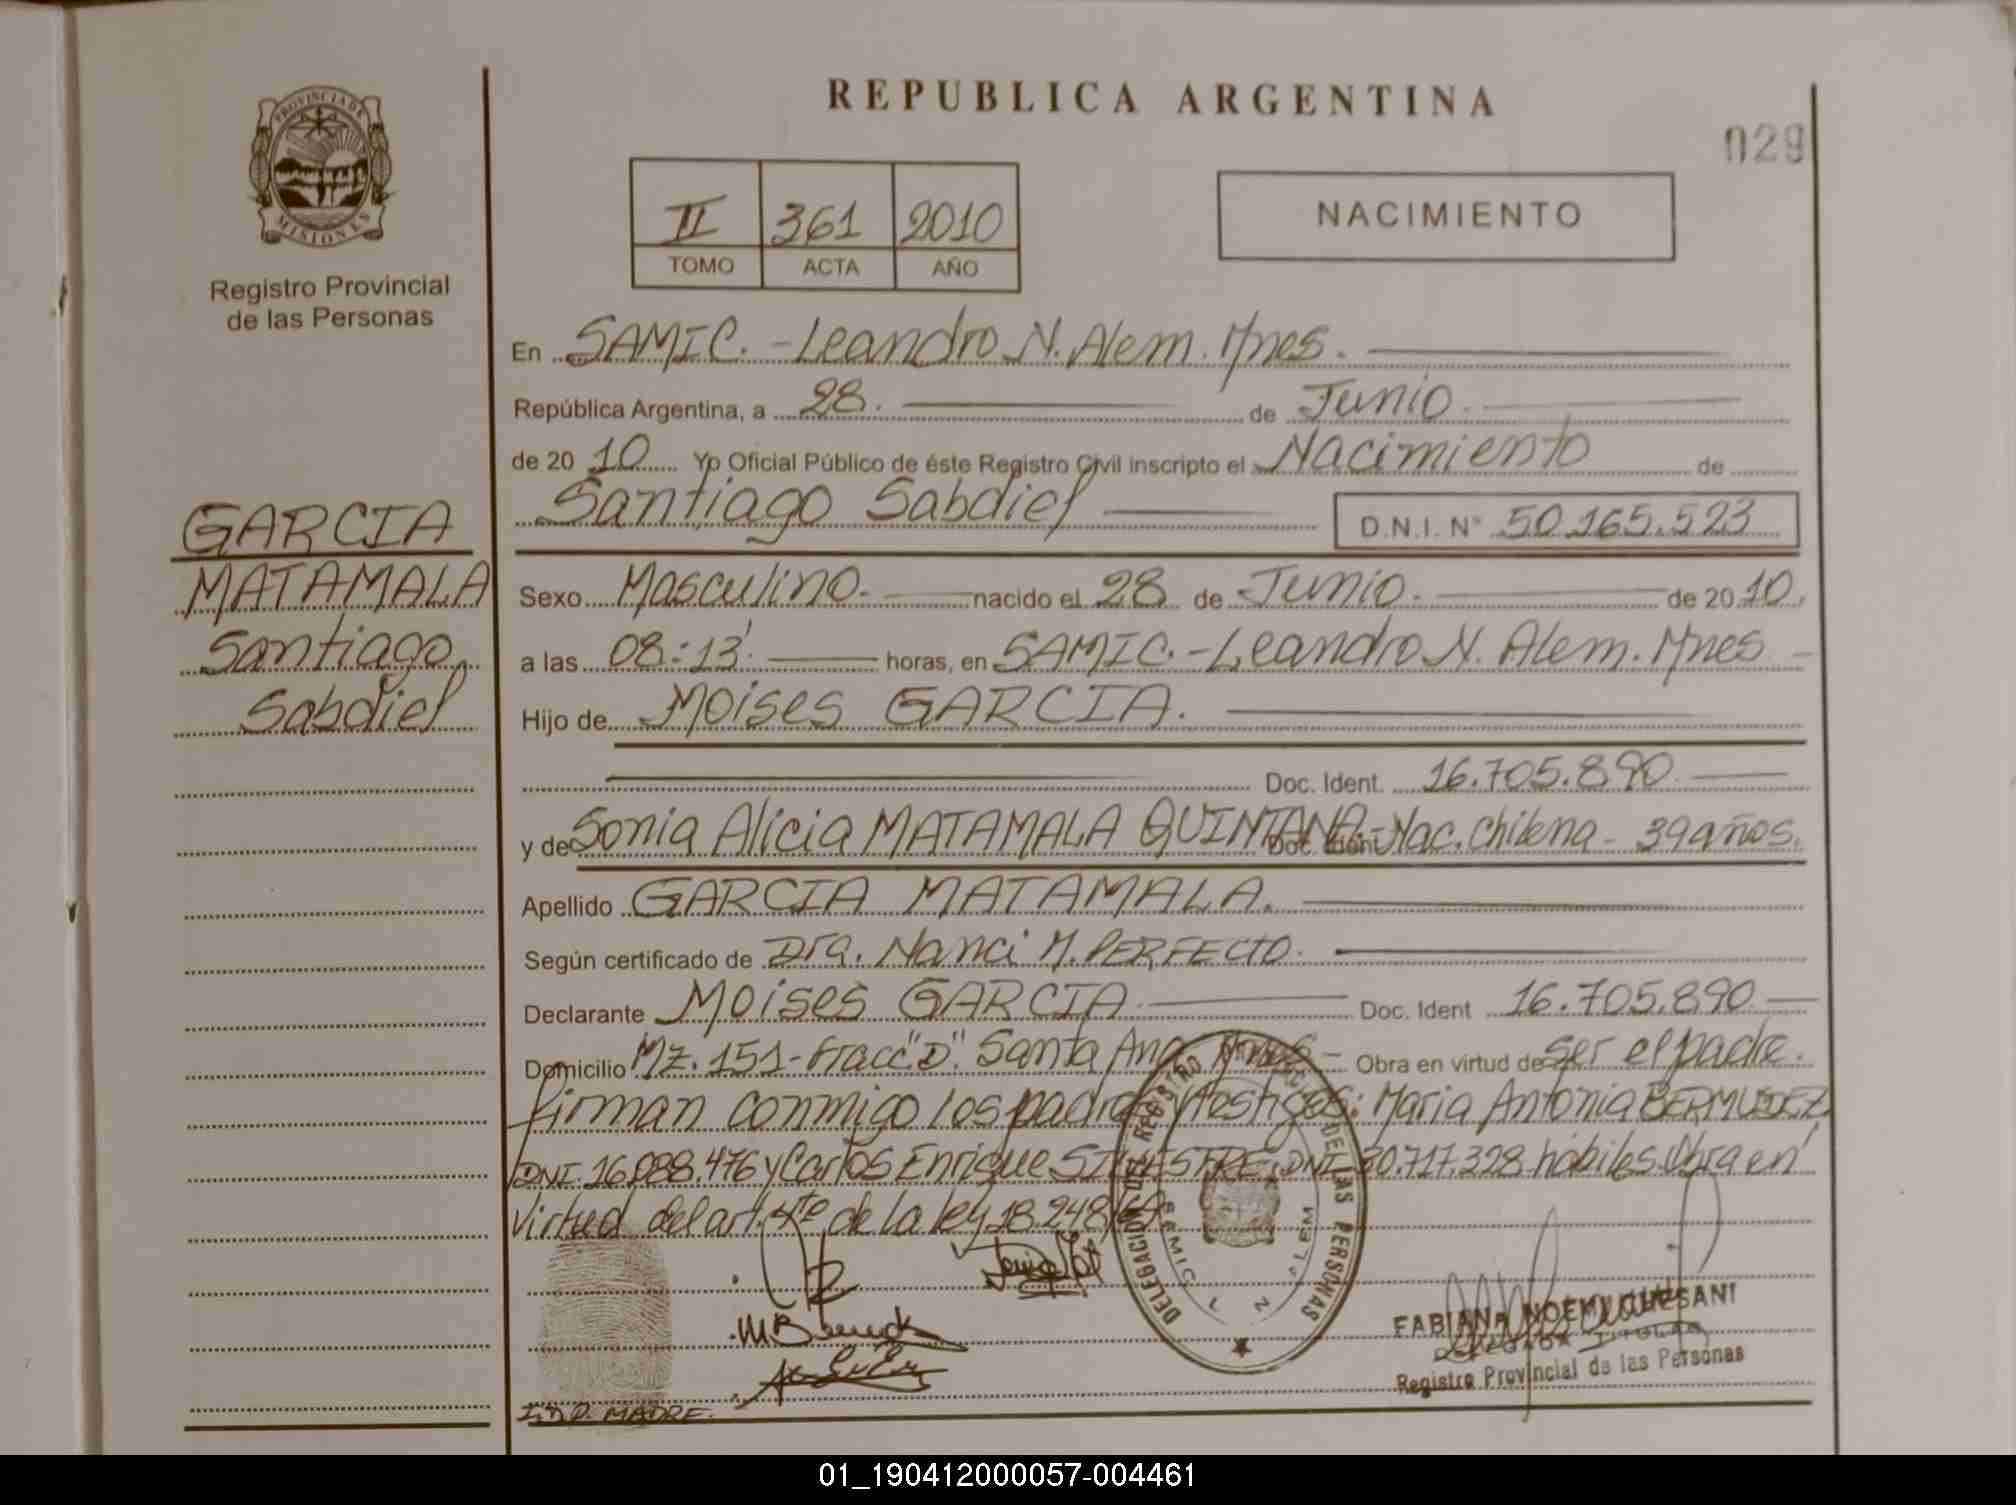 REPUBLICA ARGENTINA
029
PROVINCIA DE
MISIONES
Registro Provincial
de las Personas
II 361 2010
TOMO ACTA AÑO
NACIMIENTO
En SAMIC. - Leandro N. Alem. Mnes.
República Argentina, a 28. de Junio
de 20 10 Yo Oficial Público de éste Registro Civil inscripto el Nacimiento de
Santiago Sabdiel D.N.I. N° 50.165.523
GARCIA
MATAMALA
Santiago
Sabdiel
Sexo Masculino. nacido el 28 de Junio. de 20 10.
a las 08:13' horas, en SAMIC. - Leandro N. Alem. Mnes
Hijo de Moises GARCIA.
Doc. Ident. 16.705.890
y de Sonia Alicia MATAMALA QUINTANA Doc. Ident - Nac. Chilena - 39 años.
Apellido GARCIA MATAMALA.
Según certificado de Dra. Nanci M. PERFECTO.
Declarante Moises GARCIA Doc. Ident 16.705.890
Domicilio Mz. 151 - Fracc "D". Santa Ana Mnes - Obra en virtud de ser el padre.
Firman conmigo los padres y testigos: Maria Antonia BERMUDEZ
DNI. 16.088.476 y Carlos Enrique SILVESTRE DNI 30.717.328 hábiles. Obra en
virtud del art. 4to de la ley 18.248/69
DELEGACION REGISTRO PROVINCIAL DE LAS PERSONAS
SEMIC L N ALEM
FABIANA NOEMI
DELEGADA TITULAR
Registro Provincial de las Personas
I.D.D. MADRE.
01_190412000057-004461